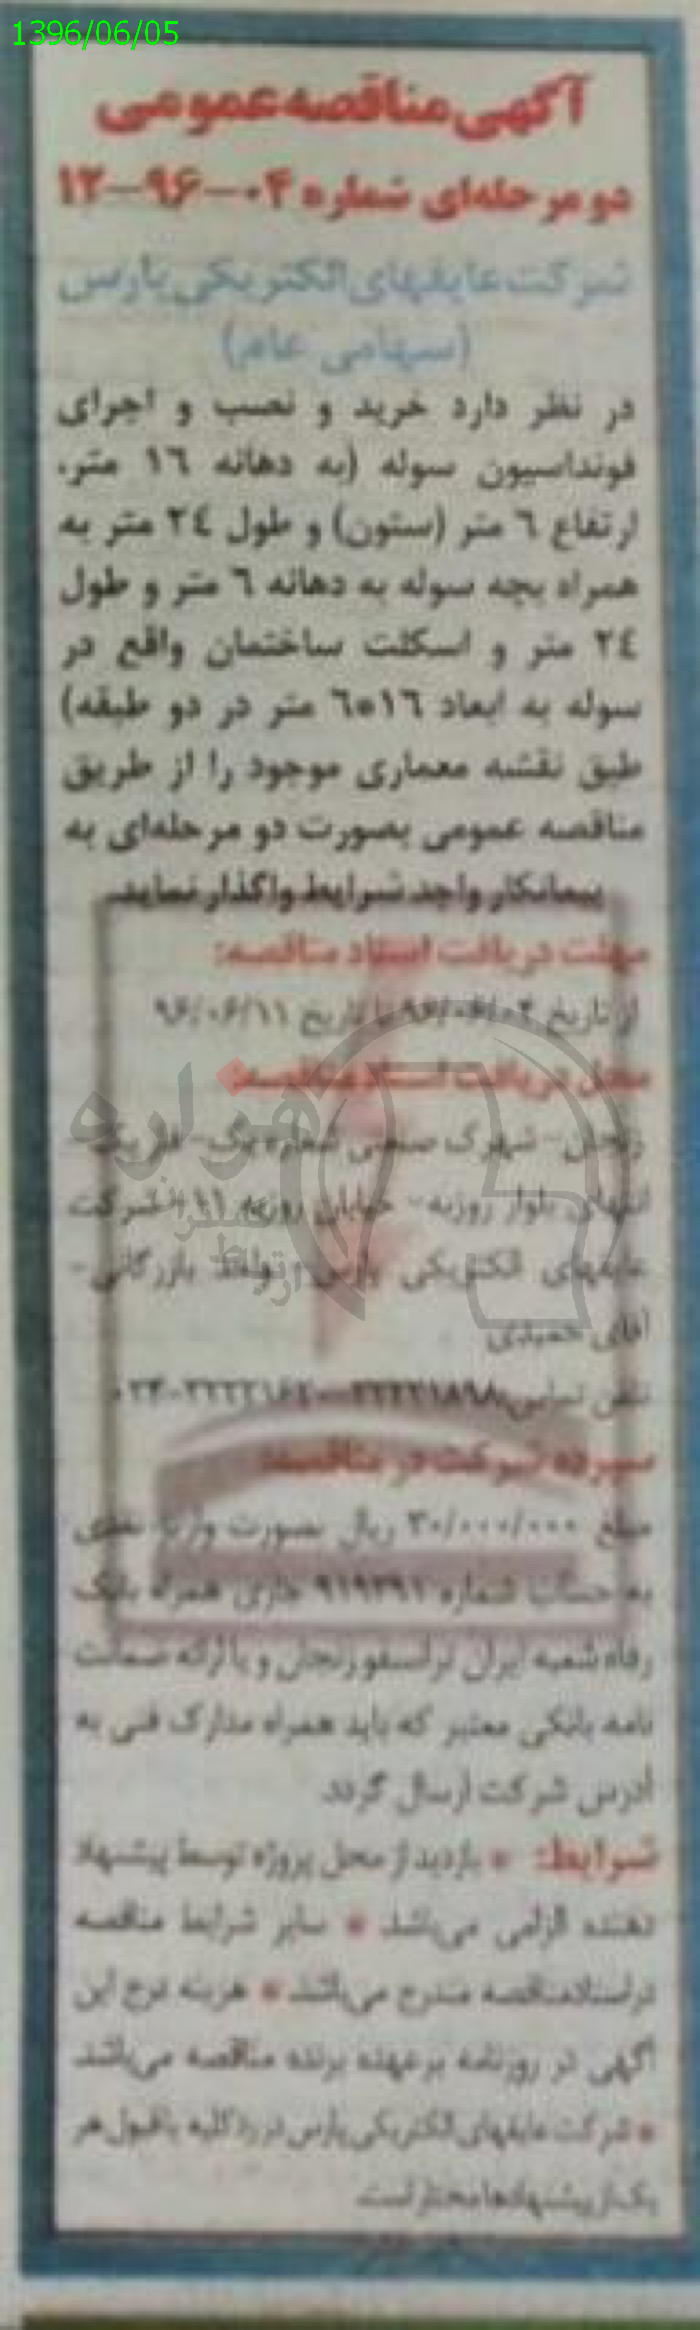 1396/06/05
آگهی مناقصه عمومی
دو مرحله‌ای شماره ۰۴-۹۶-۱۲
شرکت عایقهای الکتریکی پارس
(سهامی عام)
در نظر دارد خرید و نصب و اجرای
فونداسیون سوله (به دهانه ۱۶ متر،
ارتفاع ۶ متر (ستون) و طول ۲۴ متر به
همراه بچه سوله به دهانه ۶ متر و طول
۲۴ متر و اسکلت ساختمان واقع در
سوله به ابعاد ۱۶*۶ متر در دو طبقه)
طبق نقشه معماری موجود را از طریق
مناقصه عمومی بصورت دو مرحله‌ای به
پیمانکار واجد شرایط واگذار نماید.
مهلت دریافت اسناد مناقصه:
از تاریخ ۹۶/۰۶/۰۲ تا تاریخ ۹۶/۰۶/۱۱
محل دریافت اسناد مناقصه:
زنجان- شهرک صنعتی شماره یک- فاز یک-
انتهای بلوار روزبه- خیابان روزبه ۱۱- شرکت
عایقهای الکتریکی پارس- واحد بازرگانی-
آقای حمیدی
تلفن تماس:
سپرده شرکت در مناقصه:
مبلغ ۳۰/۰۰۰/۰۰۰ ریال بصورت واریز نقدی
به حساب شماره جاری همراه بانک
رفاه شعبه ایران ترانسفو زنجان و یا ارائه ضمانت
نامه بانکی معتبر که باید همراه مدارک فنی به
آدرس شرکت ارسال گردد.
شرایط: * بازدید از محل پروژه توسط پیشنهاد
دهنده الزامی می‌باشد. * سایر شرایط مناقصه
در اسناد مناقصه مندرج می‌باشد. * هزینه درج این
آگهی در روزنامه بر عهده برنده مناقصه می‌باشد.
* شرکت عایقهای الکتریکی پارس در رد کلیه یا قبول هر
یک از پیشنهادها مختار است.
هزاره